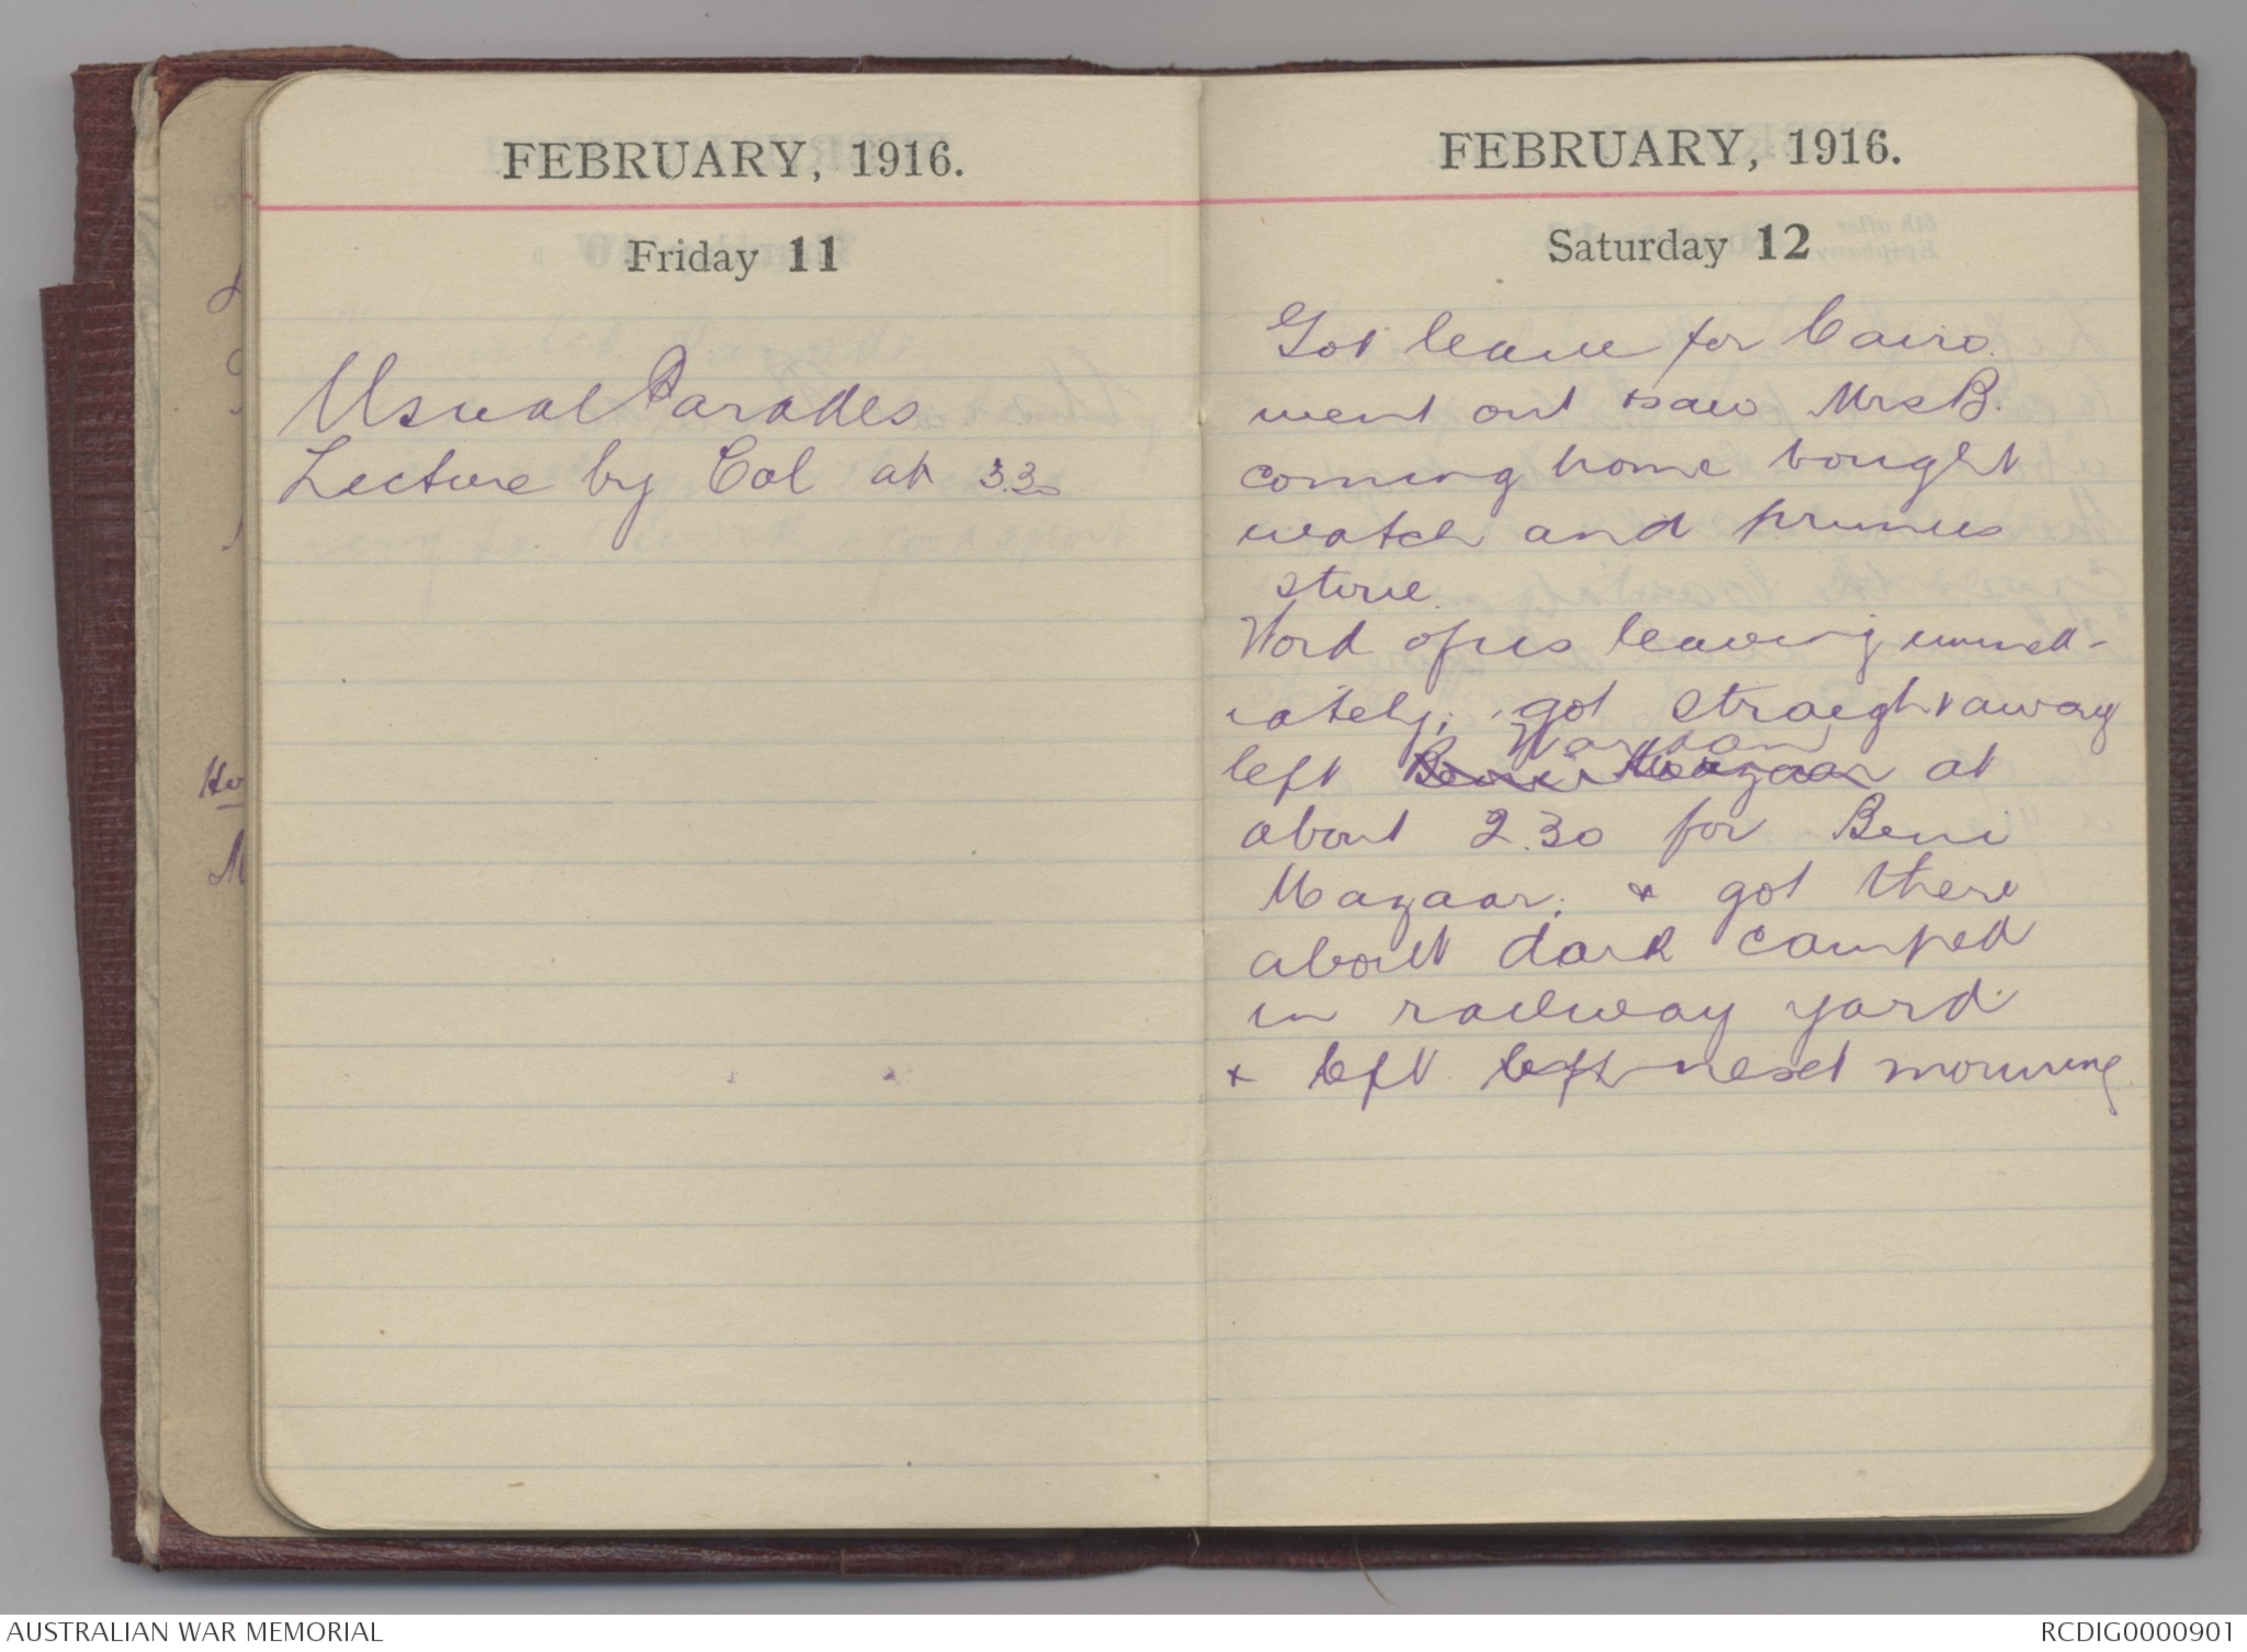 FEBRUARY, 1916.
Friday 11
Usual Parades
Lecture by Col at 3.30
FEBRUARY, 1916.
Saturday 12
Got leave for Cairo.
went out & saw Mrs B.
coming home bought
watch and primus
stove.
Word of us leaving immed-
iately; got straight away
Wardan
left Beni Mazaar at
about 2.30 for Beni
Mazaar; & got there
about dark camped
in railway yard.
& left left next morning
AUSTRALIAN WAR MEMORIAL
RCDIG0000901